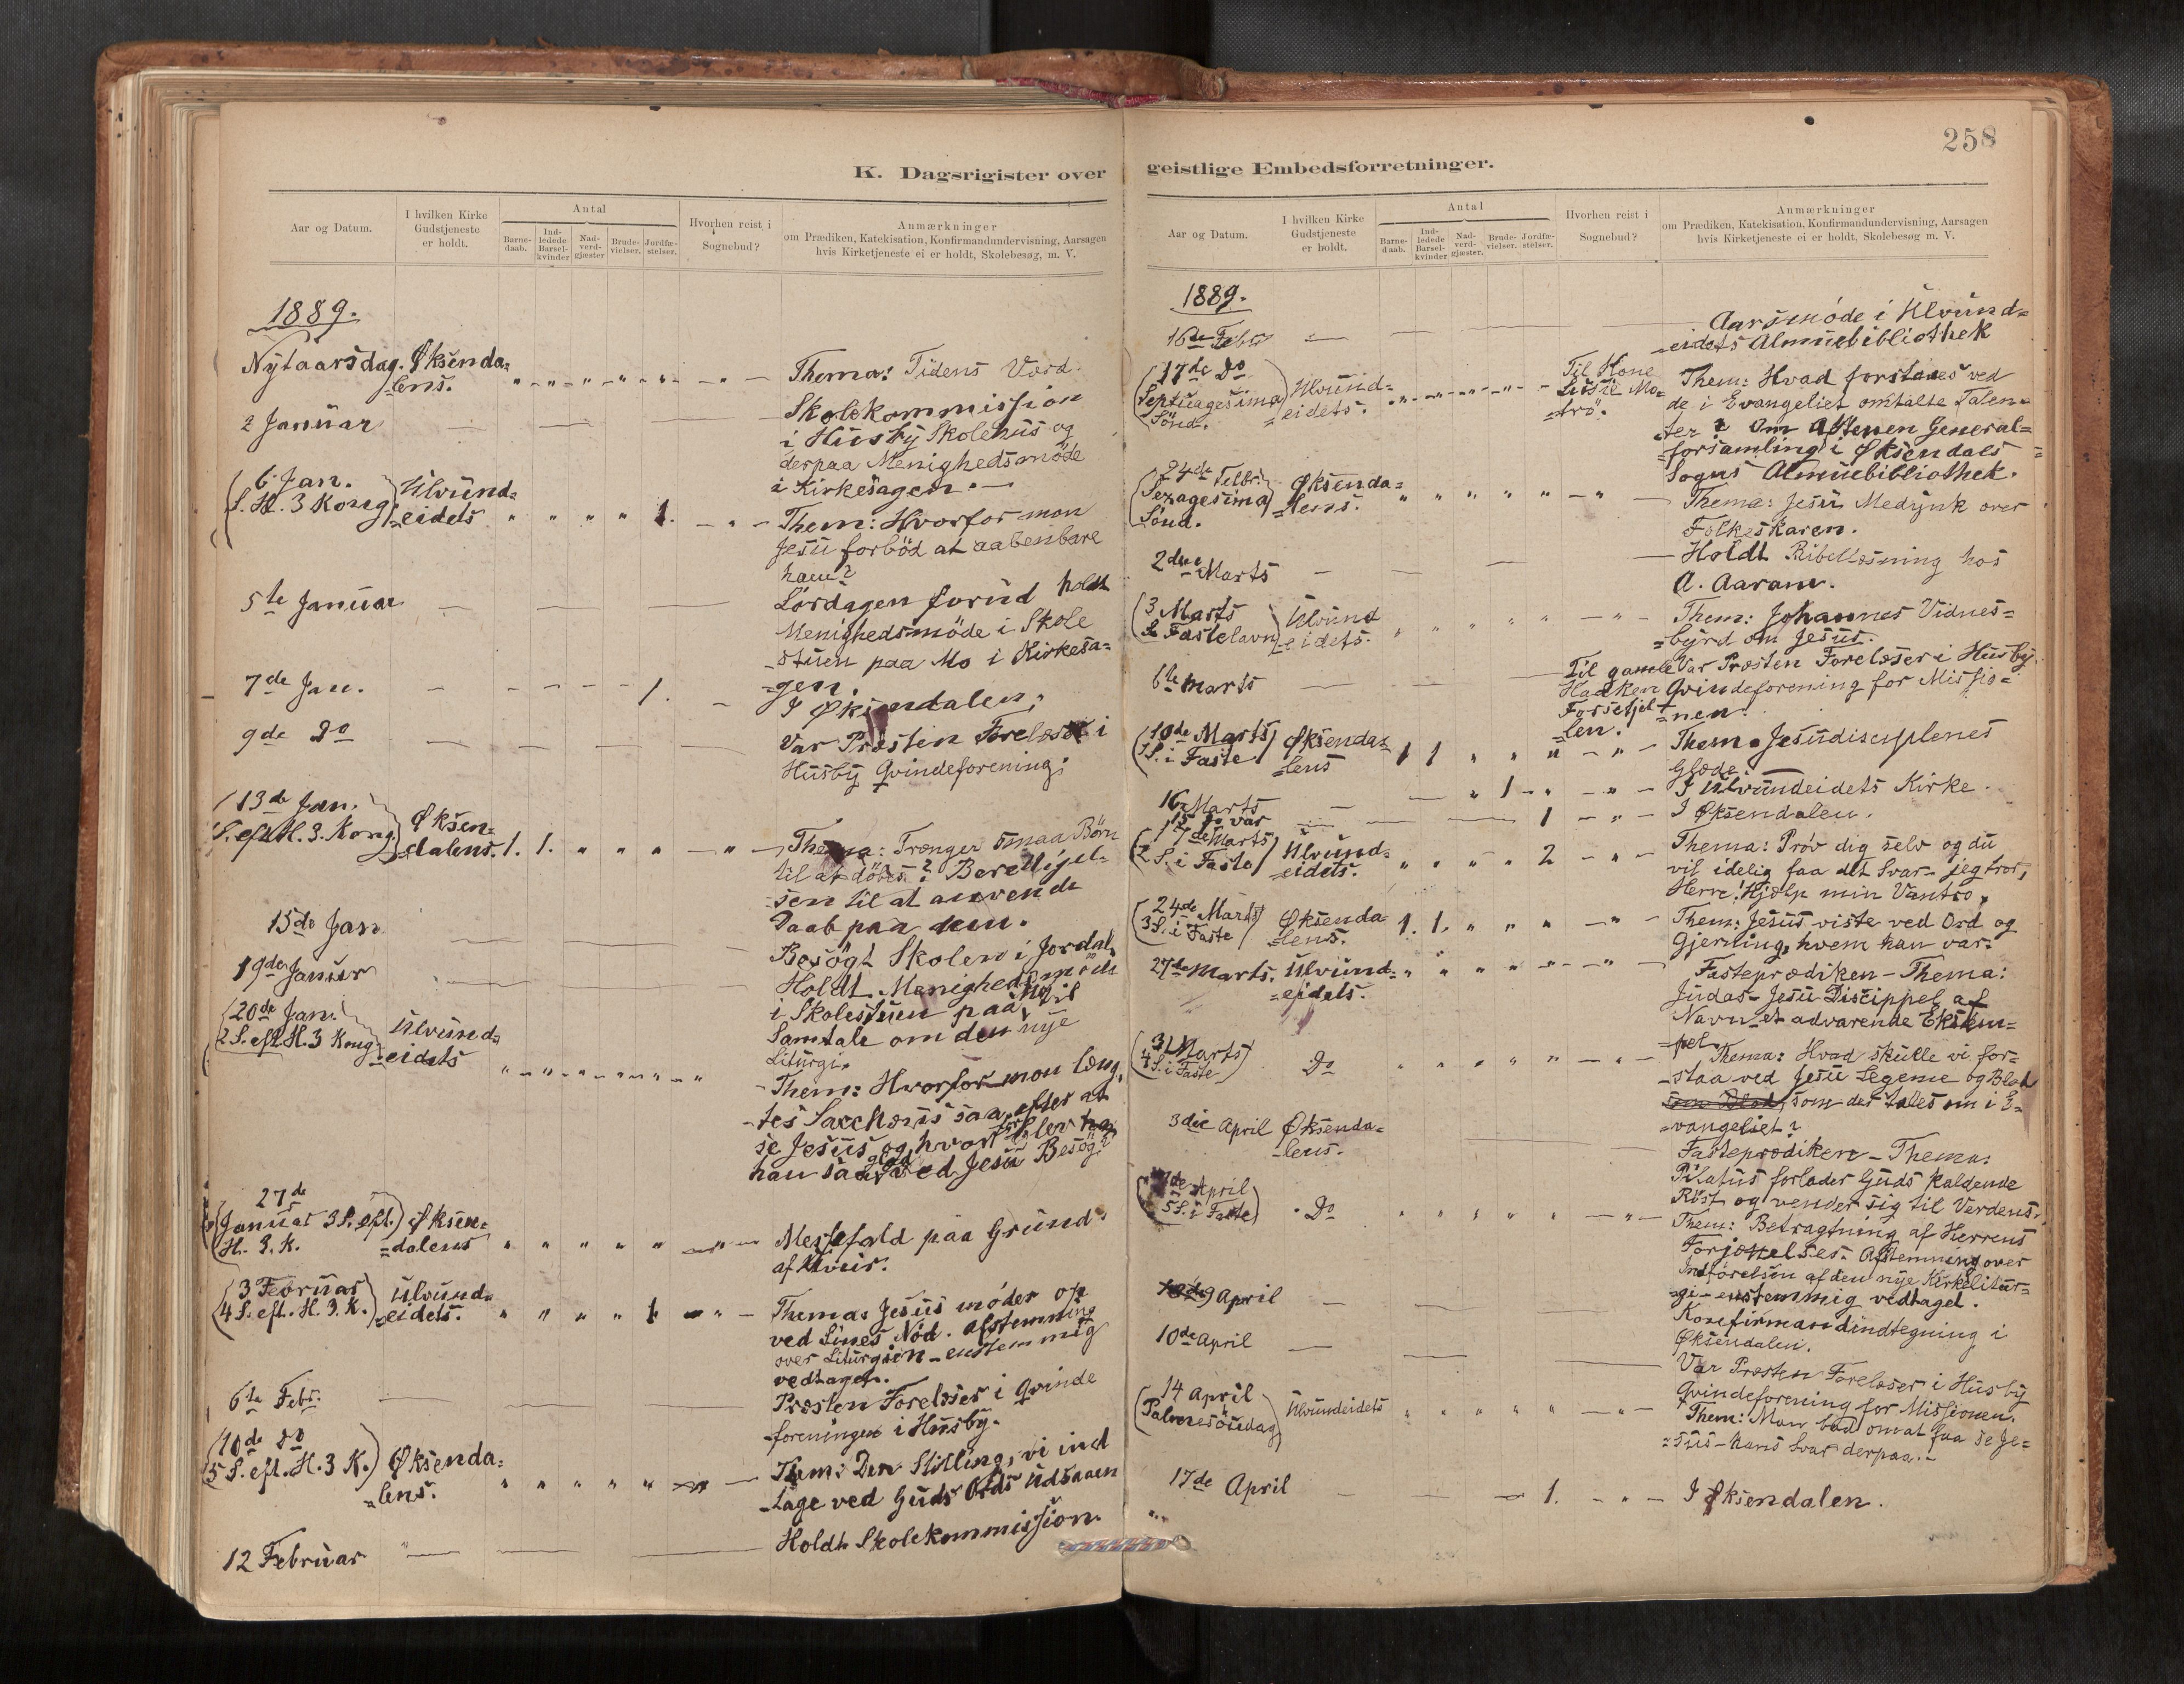 K. Dagsrigister over
Aar og Datum.
I hvilken Kirke
Gudstjeneste
er holdt.
Antal
Barne-
daab.
Ind-
ledede
Barsel-
kvinder
Nad-
verd-
gjæster
Brude-
vielser.
Jordfæ-
stelser.
Hvorhen reist i
Sognebud?
Anmærkninger
om Prædiken, Katekisation, Konfirmandundervisning, Aarsagen
hvis Kirketjeneste ei er holdt, Skolebesøg, m. V.
1889.
Nytaarsdag. Øksenda=
=lens. " " " " " " Thema: Tidens Værd.
2 Januar — — — Skolekommission
i Husby Skolehus og
derpaa Menighedsmøde
i Kirkesagen.
6. Jan. Ulvund=
S. H. 3 Kong =eidets " " " " 1. " Them: Hvorfor mon
Jesu forbød at aabenbare
ham?
5te Januar — — — Lørdagen forud holdt
Menighedsmøde i Skole
=stuen paa Mo i Kirkesa=
=gen.
7de Jan. — — — 1. — I Øksendalen;
9de Do — — — Var Præsten Forelæser i
Husby Qvindeforening;
13de Jan. Øksen=
S. eft H. 3. Kong =dalens. 1. 1. " " " " Thema: Trænger smaa Børn
til at døbes? Berettigel=
=sen til at anvende
Daab paa dem.
15de Jan — — — Besøgt Skolen i Jordal.
19de Januar — — — Holdt Menighedsmøde
i Skolestuen paa Mo til
Samtale om den nye
Liturgi.
20de Jan. Ulvund=
2 S. eft H. 3 Kong =eidets " " " " " " Them: Hvorfor mon læng=
=tes Sacchæus saa efter at
se Jesus og hvorfor blev
han saa glad ved Jesu Besøg?
27de
Januar 3 S. eft. Øksen=
H. 3. K. =dalens " " " " " " Messefald paa Grund
af Uveir.
3 Februar Ulvund=
4 S. eft. H. 3. K. =eidets. " " " " 1 " Thema: Jesus møder op
ved Sines Nød. Afstemning
over Liturgien - enstemmig
vedtaget.
6te Febr. — — Præsten Forelæser i Qvinde
foreningen i Husby.
10de Do
5 S. eft. H. 3 K. Øksenda=
=lens. " " " " " " Them: Den Stilling, vi ind
=tage ved Guds Ords Udsaaen
12 Februar " — — — Holdt Skolekommission.
258
geistlige Embedsforretninger.
Aar og Datum.
I hvilken Kirke
Gudstjeneste
er holdt.
Antal
Barne-
daab.
Ind-
ledede
Barsel-
kvinder
Nad-
verd-
gjæster.
Brude-
vielser.
Jordfæ-
stelser.
Hvorhen reist i
Sognebud?
Anmærkninger
om Prædiken, Katekisation, Konfirmandundervisning, Aarsagen
hvis Kirketjeneste ei er holdt, Skolebesøg m. V.
1889.
16de Febr — — — Aarsmøde i Ulvund=
=eidets Almuebibliothek
17de Do
Septuagesima
Sønd. Ulvund=
=eidets. " " " " " Til Kone
Lussie Mo=
=trø. Them: Hvad forstaaes ved
de i Evangeliet omtalte Talen=
=ter? Om Aftenen General=
=forsamling i Øksendals
Sogns Almuebibliothek.
24de Febr.
Sexagesima
Sønd. Øksenda=
=lens. " " " " " " Thema: Jesu Medynk over
Folkeskaren.
2den Marts — — — Holdt Bibellæsning hos
A. Aaram.
3 Marts Ulvund
S. Fastelavn =eidets. " " " " " " Them: Johannes Vidnes=
=byrd om Jesus.
6te Marts — — Til gamle
Haaken
Forsetjel=
=len. Var Præsten Forelæser i Husby
Qvindeforening for Missio=
=nen.
10de Marts Øksenda=
1 S. i Faste =lens 1 1 " " " " Them. Jesudisciplenes
Glæde.
16 Marts — — " 1 " " I Ulvundeidets Kirke.
15 Do var — — 1 " I Øksendalen.
17de Marts Ulvund=
2 S. i Faste =eidets. " " " " 2 " Thema: Prøv dig selv og du
vil idelig faa det Svar - jeg tror,
Herre! Hjælp min Vantro.
24de Marts Øksenda
3 S. i Faste =lens. 1. 1. " " " " Them: Jesus viste ved Ord og
Gjerning, hvem han var.
27de Marts. Ulvund=
=eidets. " " " " " " Fasteprædiken - Thema:
Judas - Jesu Discippel af
Navn - et advarende Eksem=
=pel.
31 Marts
4 S. i Faste Do " " " " " " Thema: Hvad skulle vi for=
=staa ved Jesu Legeme og Blod
som der tales om i E=
=vangeliet?
3die April Øksenda=
=lens. — — — Fasteprædiken - Thema:
Pilatus forlader Guds kaldende
Røst og vender sig til Verdens.
7de April
5 S. i Faste Do " " " " " " Them: Betragtning af Herrens
Afstemning over
Indførelsen af den nye Kirkelitur=
=gi - enstemmig vedtaget.
9 April — — — Konfirmandindtegning i
Øksendalen.
10de April — — — Var Præsten Forelæser i Husby
Qvindeforening for Missionen.
14 April
Palmesøndag Ulvundeidets " " " " " " Them: Man bad om at faa se Je=
=sus - hans Svar derpaa. -
17de April — — — 1. — " — I Øksendalen.